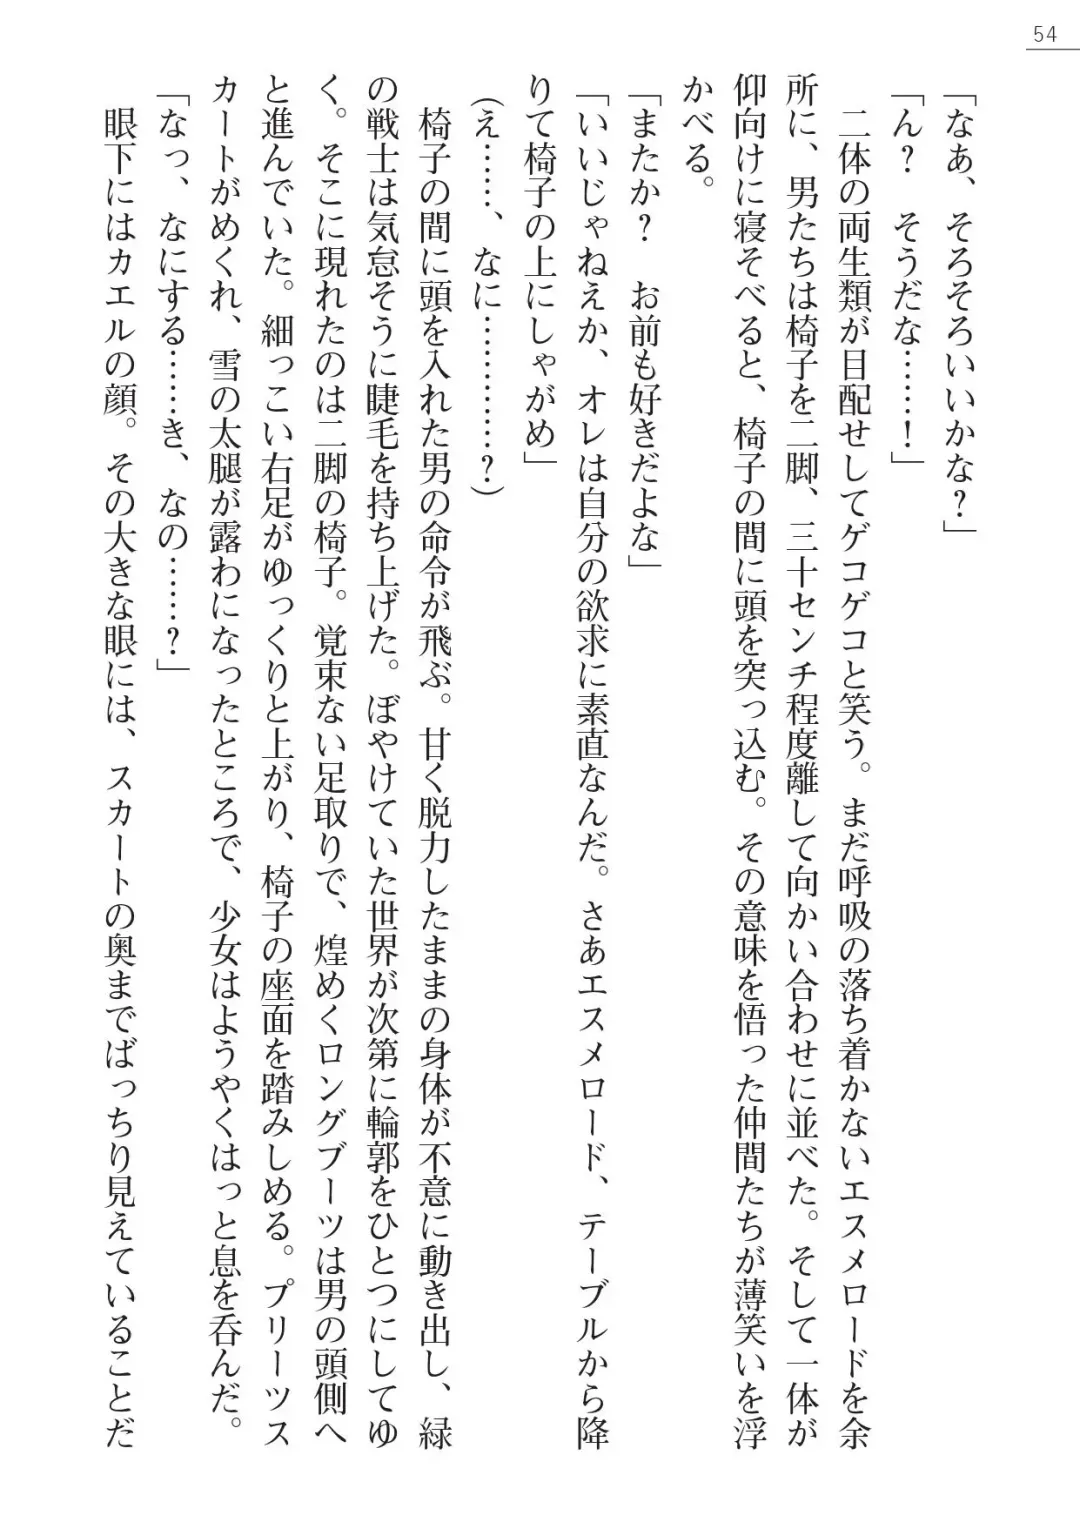 54
「なあ、そろそろいいかな?」
「ん?　そうだな……!」
　二体の両生類が目配せしてゲコゲコと笑う。まだ呼吸の落ち着かないエスメロードを余
所に、男たちは椅子を二脚、三十センチ程度離して向かい合わせに並べた。そして一体が
仰向けに寝そべると、椅子の間に頭を突っ込む。その意味を悟った仲間たちが薄笑いを浮
かべる。
「またか?　お前も好きだよな」
「いいじゃねえか、オレは自分の欲求に素直なんだ。さあエスメロード、テーブルから降
りて椅子の上にしゃがめ」
(え……、なに…………?)
　椅子の間に頭を入れた男の命令が飛ぶ。甘く脱力したままの身体が不意に動き出し、緑
の戦士は気怠そうに睫毛を持ち上げた。ぼやけていた世界が次第に輪郭をひとつにしてゆ
く。そこに現れたのは二脚の椅子。覚束ない足取りで、煌めくロングブーツは男の頭側へ
と進んでいた。細っこい右足がゆっくりと上がり、椅子の座面を踏みしめる。プリーツス
カートがめくれ、雪の太腿が露わになったところで、少女はようやくはっと息を呑んだ。
「なっ、なにする……き、なの……?」
　眼下にはカエルの顔。その大きな眼には、スカートの奥までばっちり見えていることだ